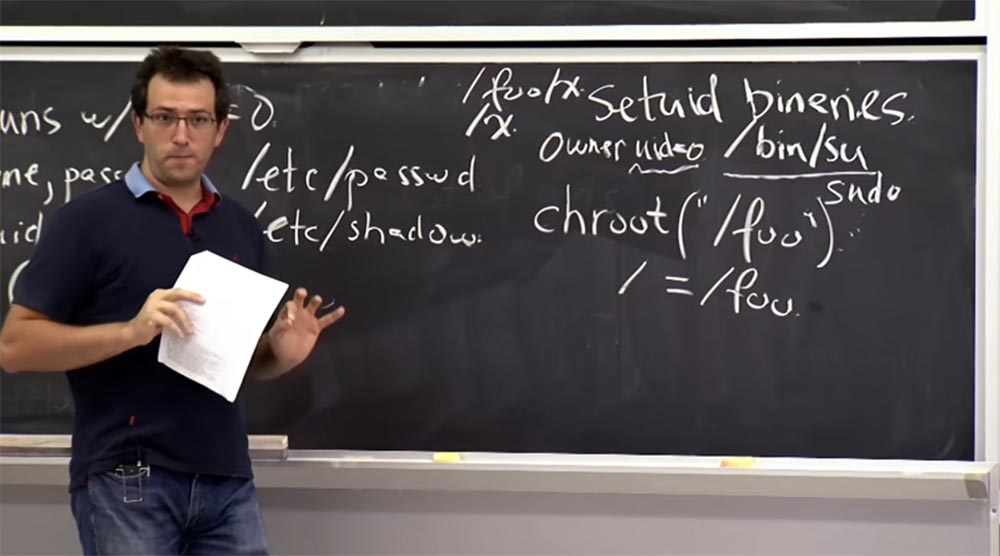 uns w/ =0
me, pass /etc/passwd
uid /etc/shadow.
/foo/x
/x.
Setuid bineries.
Owner uid=0 /bin/su
sudo
chroot("/foo")
/ = /foo.